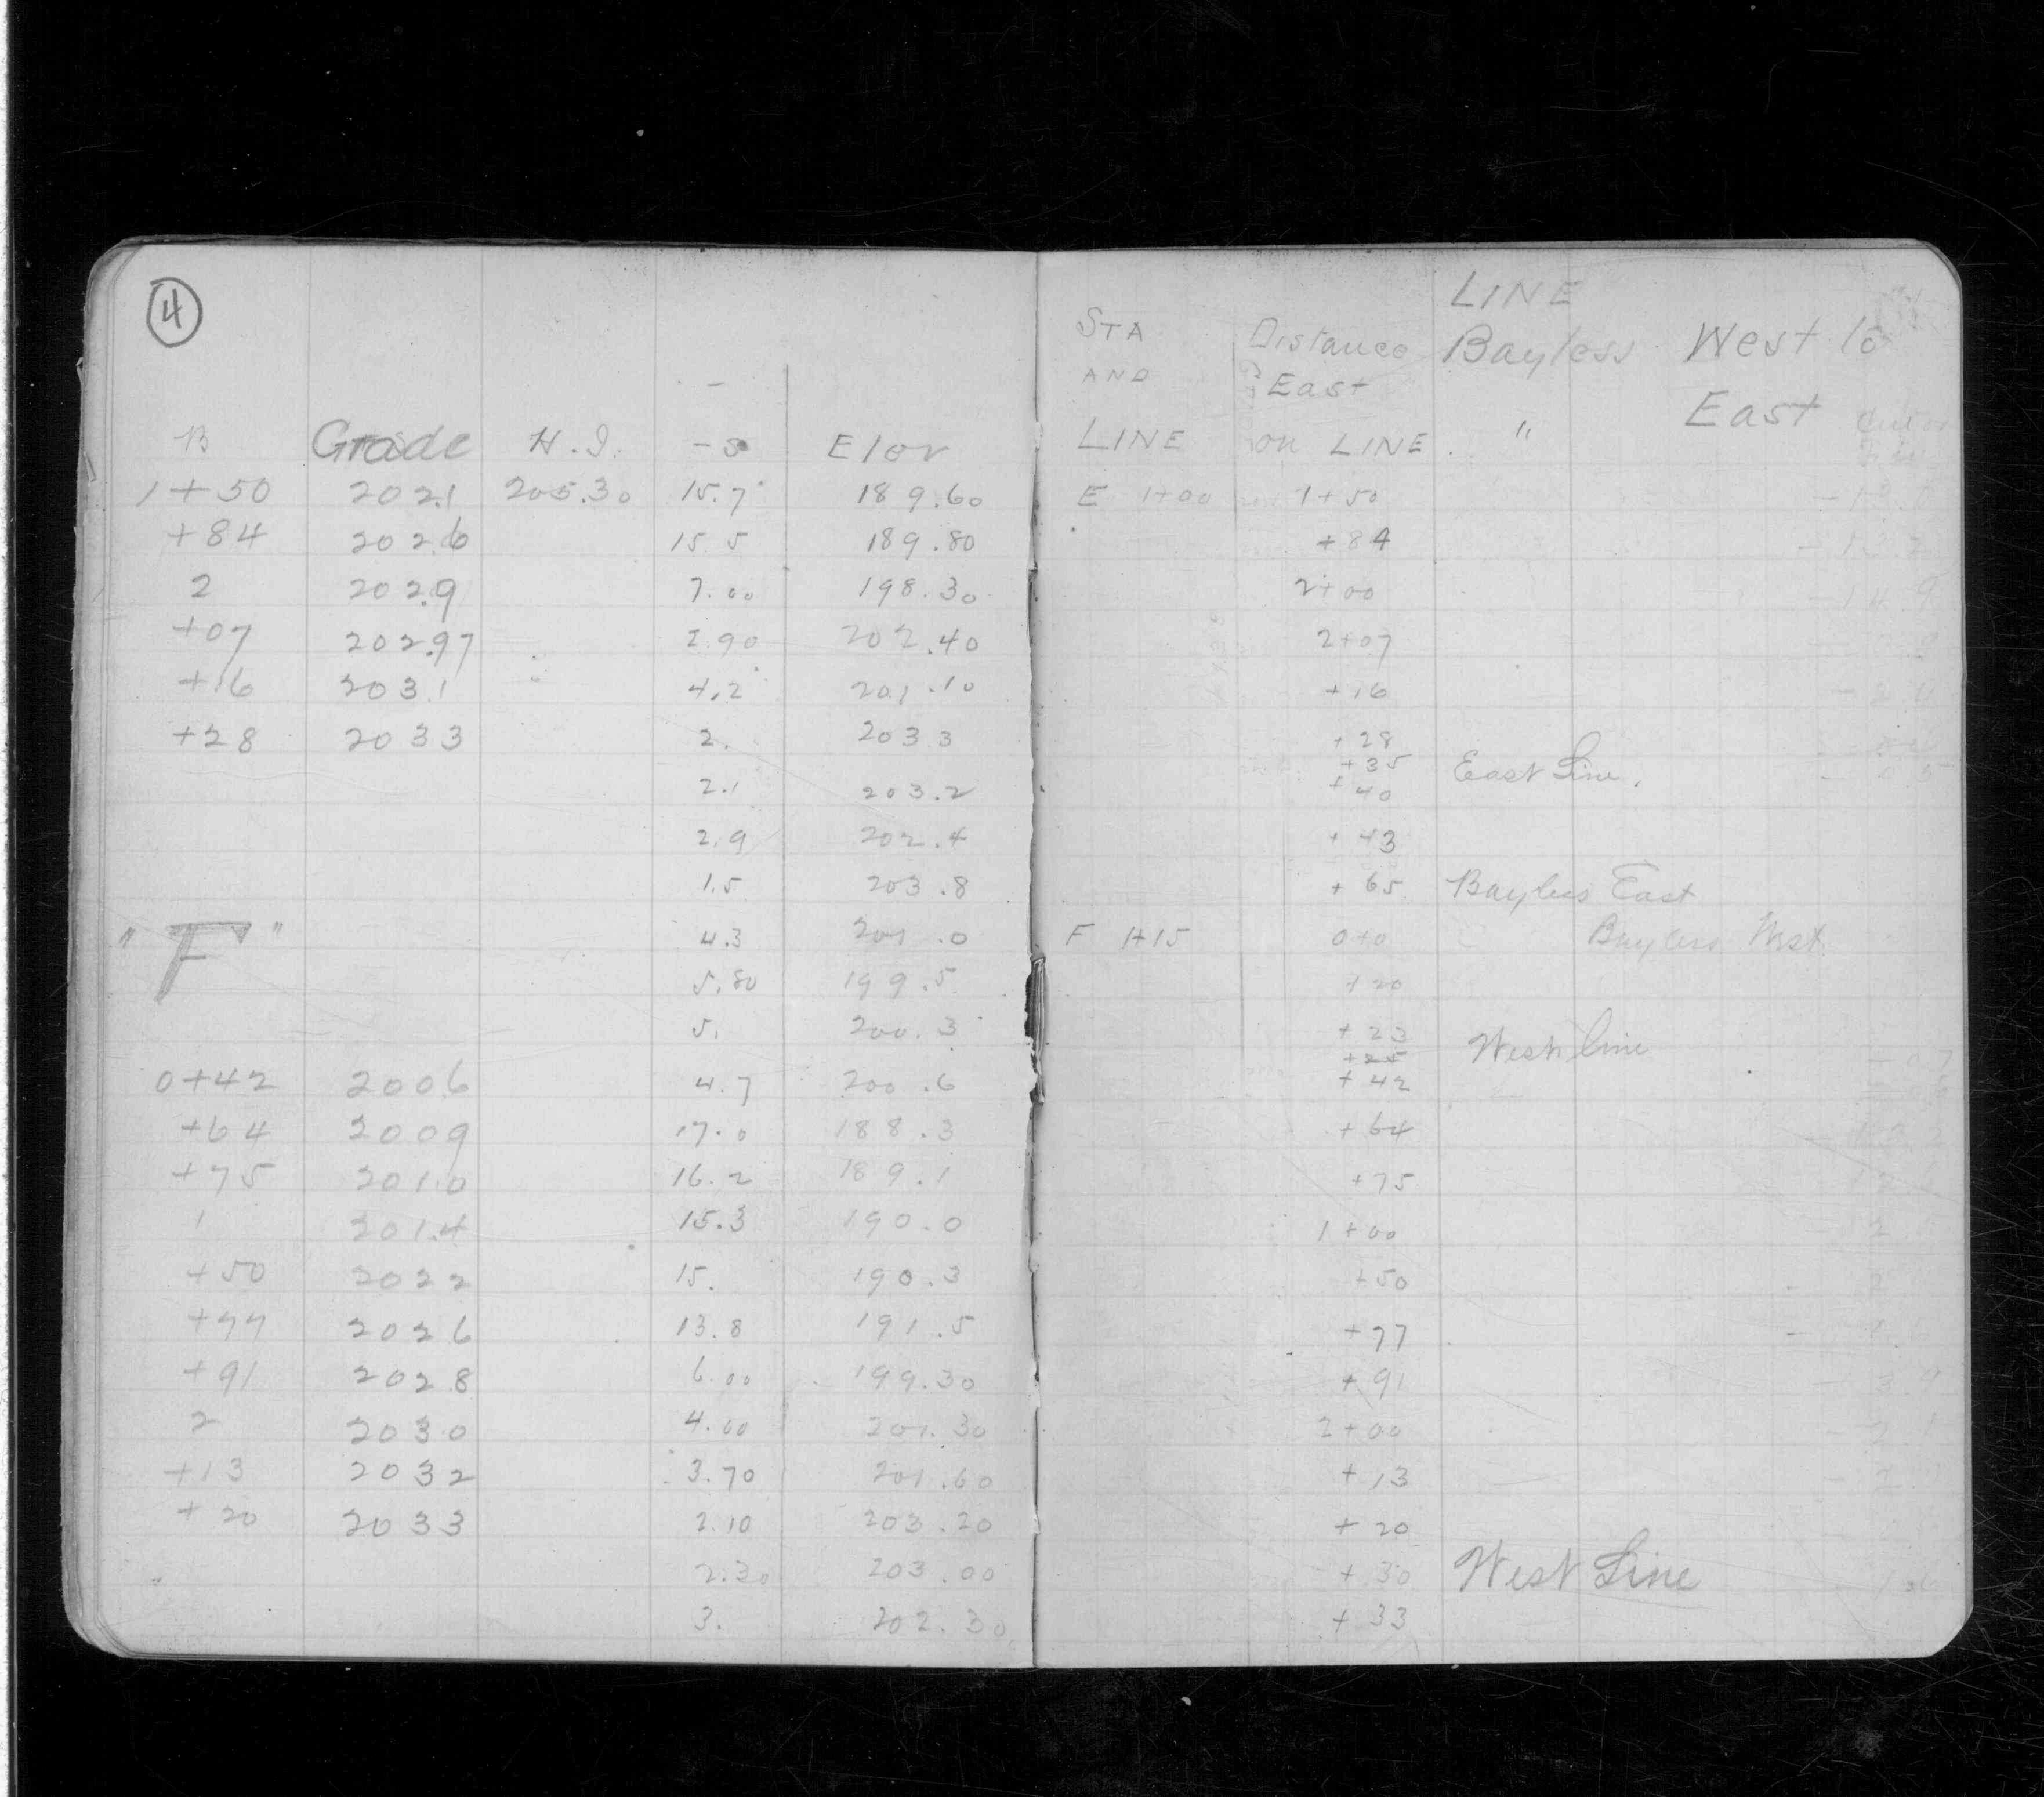 4
B Grade H.I. -S Elev
1+50 202.1 205.30 15.7 189.60
+84 202.6 15.5 189.80
2 202.9 7.00 198.30
+07 202.97 2.90 202.40
+16 203.1 4.2 201.10
+28 203.3 2. 203.3
2.1 203.2
2.9 202.4
1.5 203.8
"F" 4.3 201.0
5.80 199.5
5. 200.3
0+42 200.6 4.7 200.6
+64 200.9 17.0 188.3
+75 201.0 16.2 189.1
1 201.4 15.3 190.0
+50 202.2 15. 190.3
+77 202.6 13.8 191.5
+91 202.8 6.00 199.30
2 203.0 4.00 201.30
+13 203.2 3.70 201.60
+20 203.3 2.10 203.20
2.30 203.00
3. 202.30
LINE
STA Distance Bayless West to
AND East
LINE on LINE " East
E 1+00 1+50
+84
2+00
2+07
+16
+28
+35 East Line.
+40
+43
+65 Bayless East
F 1+15 0+0 Bayless West
+20
+23
+25 West Line
+42
+64
+75
1+00
+50
+77
+91
2+00
+13
+20
+30 West Line
+33